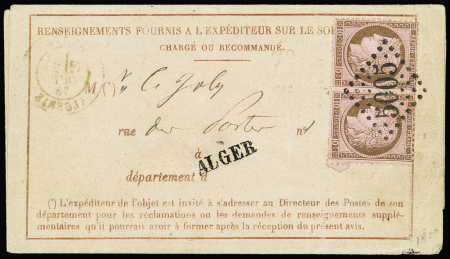 RENSEIGNEMENTS FOURNIS A L'EXPÉDITEUR SUR LE SO
CHARGÉ OU RECOMMANDÉ.
M(*)
rue des Postes n°
à
ALGER
département d
5005
(*) L'expéditeur de l'objet est invité à s'adresser au Directeur des Postes de son
département pour les réclamations ou les demandes de renseignements supplé-
mentaires qu'il pourrait avoir à former après la réception du présent avis.